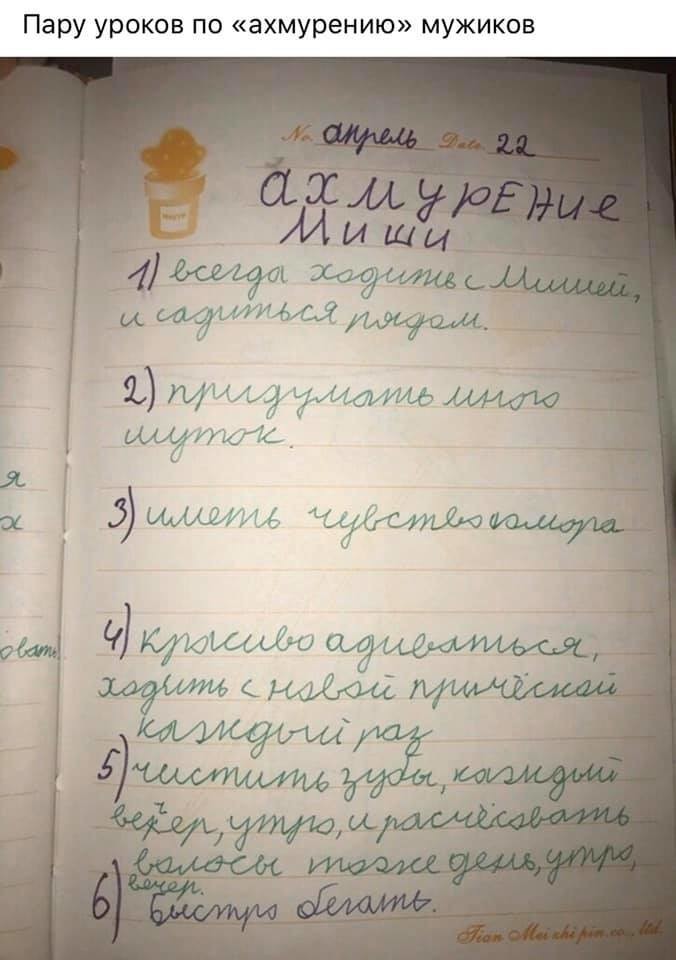 Пару уроков по «ахмурению» мужиков
No. апрель Date. 22
ахмурЕНие
Миши
1) всегда ходить с Мишей,
и садиться рядом.
2) придумать много
шуток.
3) иметь чувство юмора
я
х
4) красиво адиваться,
овать
ходить с новой причёской
каждый раз
5) чистить зубы, каждый
вечер, утро, и расчёсовать
волосы тоже день, утро,
вечер.
6) Быстро бегать.
Tian Mei zhi pin co., ltd.